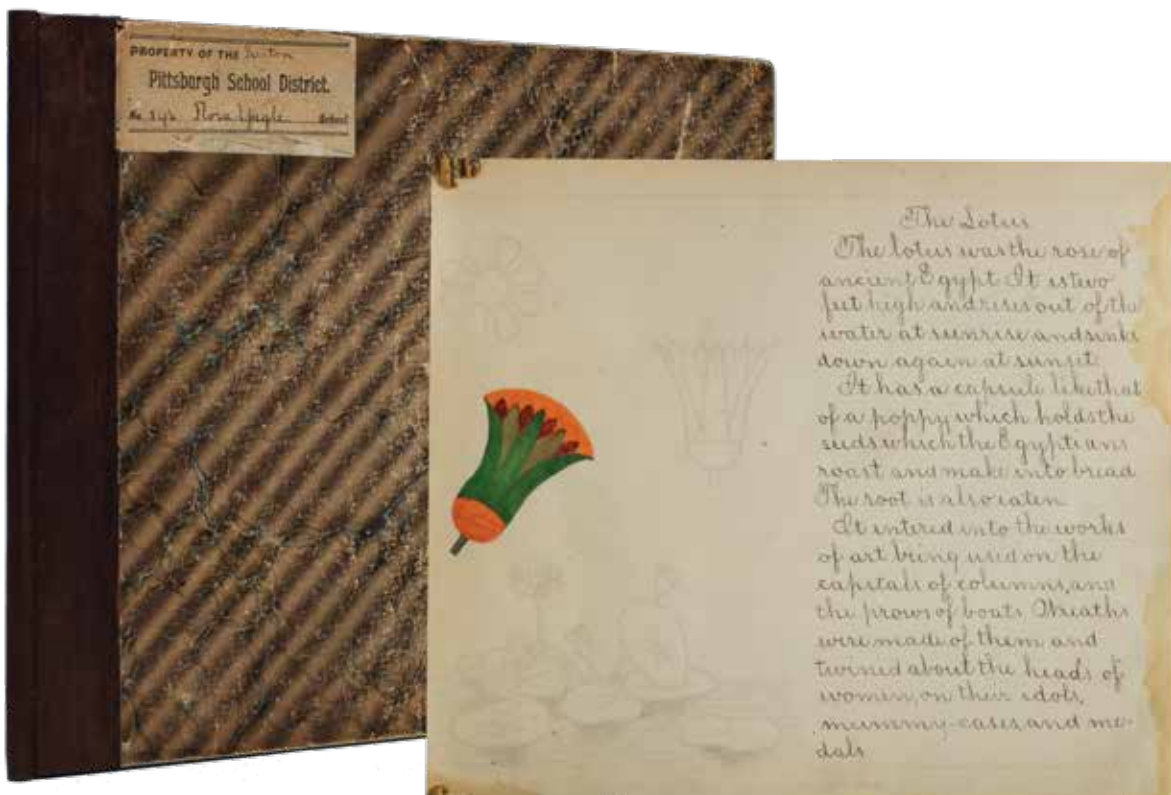 PROPERTY OF THE
Pittsburgh School District.
No. Flora School
The Lotus
The lotus was the rose of
ancient Egypt It is two
feet high and rises out of the
water at sunrise and sinks
down again at sunset
It has a capsule like that
of a poppy which holds the
seeds which the Egyptians
roast and make into bread
The root is also eaten
It entered into the works
of art being used on the
capitals of columns, and
the prows of boats Wreaths
were made of them and
twined about the heads of
women, on their idols,
mummy-cases and me-
dals